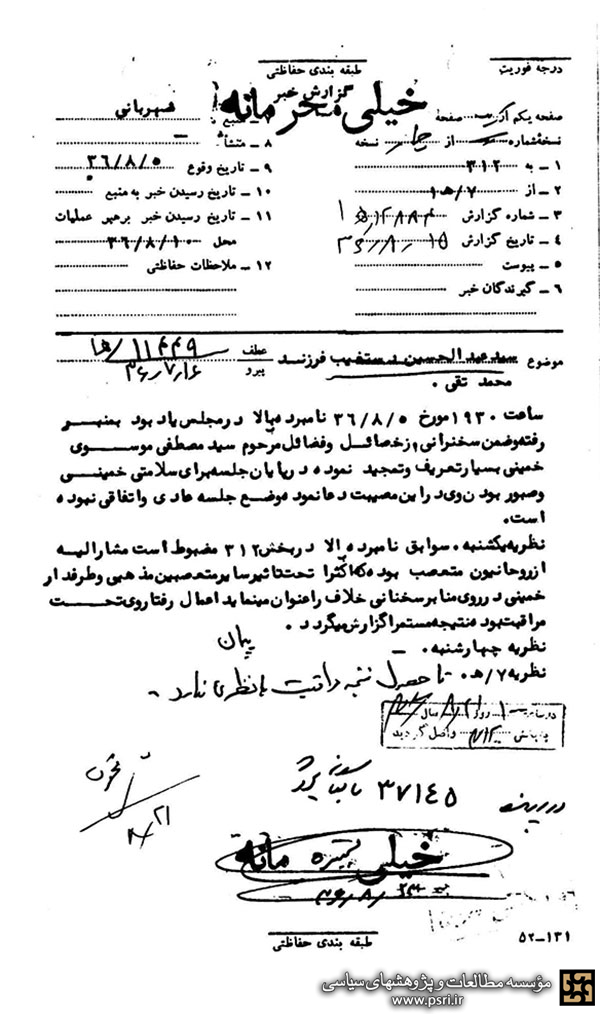 درجه فوریت
طبقه بندی حفاظتی
گزارش خبر
خیلی محرمانه
صفحه یکم از صفحه
نسخه شماره از چهار نسخه
۱ ـ به ۳۱۲
۲ ـ از ۷/ه‍
۳ ـ شماره گزارش
۴ ـ تاریخ گزارش ۳۶/۸/۱۵
۵ ـ پیوست
۶ ـ گیرندگان خبر
منبع شهربانی
۸ ـ منشأ ـ
۹ ـ تاریخ وقوع ۳۶/۸/۵
۱۰ ـ تاریخ رسیدن خبر به منبع
۱۱ ـ تاریخ رسیدن خبر برهبر عملیات
محل ۳۶/۸/۱۰
۱۲ ـ ملاحظات حفاظتی
موضوع سید عبدالحسین دستغیب فرزند
محمد تقی .
عطف ۱۱۴۴۹/ه‍
پیرو ۳۶/۷/۱۶
ساعت ۱۹۳۰ مورخ ۳۶/۸/۵ نامبرده بالا در مجلس یاد بود بمنبر
رفته وضمن سخنرانی از خصائل وفضائل مرحوم سید مصطفی موسوی
خمینی بسیار تعریف وتمجید نموده در پایان جلسه برای سلامتی خمینی
وصبور بودن وی در این مصیبت دعا نمود وضع جلسه عادی واتفاقی نبوده
است.
نظریه یکشنبه . سوابق نامبرده بالا در بخش ۳۱۲ مضبوط است مشارالیه
از روحانیون متعصب بوده که اکثرا تحت تاثیر سایر متعصبین مذهبی وطرفدار
خمینی در روی منابر سخنانی خلاف را عنوان مینماید اعمال رفتار وی تحت
مراقبت بوده نتیجه مستمرا گزارش میگردد .
نظریه چهارشنبه . ـ
نظریه ۷/ه‍ . تا حصول نتیجه مراقبت نظری ندارد .
در ساعت ۱۰ روز سال
به بخش ۳۱۲ واصل گردید
در پرونده
۳۷۱۴۵
۸/۲۱
خیلی محرمانه
۳۶/۸/۲۳
طبقه بندی حفاظتی
۵۲-۱۳۱
مؤسسه مطالعات و پژوهشهای سیاسی
www.psri.ir